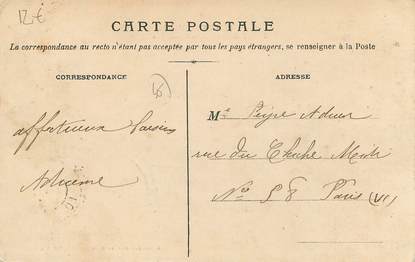 12€
CARTE POSTALE
La correspondance au recto n'étant pas acceptée par tous les pays étrangers, se renseigner à la Poste
CORRESPONDANCE
ADRESSE
45
affectueux baisers
Me Peyre
rue du Cherche Midi
No 58 Paris (VI)